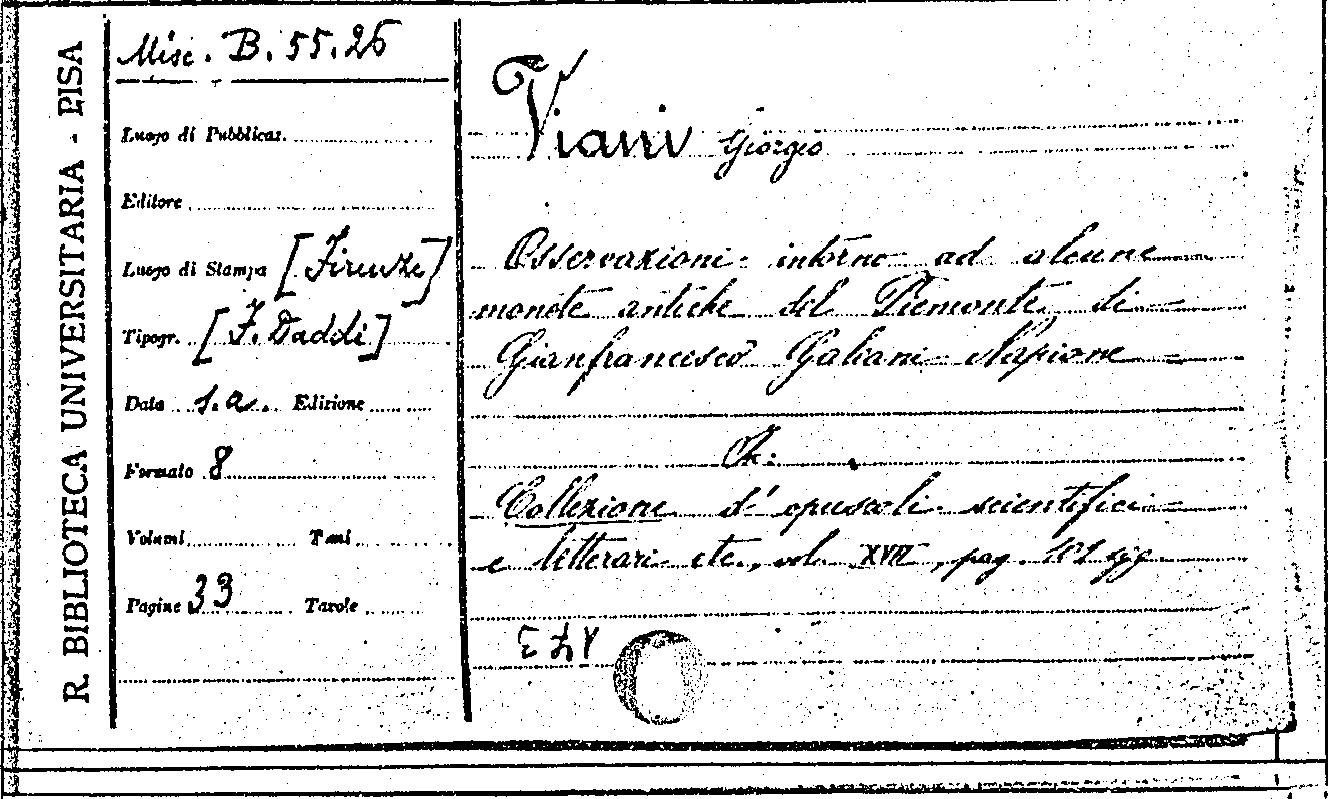 R. BIBLIOTECA UNIVERSITARIA - PISA
Misc. B. 55.26
Luogo di Pubblicaz.
Editore
Luogo di Stampa [Firenze]
Tipogr. [F. Daddi]
Data s.a. Edizione
Formato 8
Volumi Tomi
Pagine 33 Tavole
Viani Giorgio
Osservazioni intorno ad alcune
monete antiche del Piemonte di
Gianfrancesco Galeani Napione
Collezione d'opuscoli scientifici
e letterari etc., vol. XVII, pag. 101 sgg.